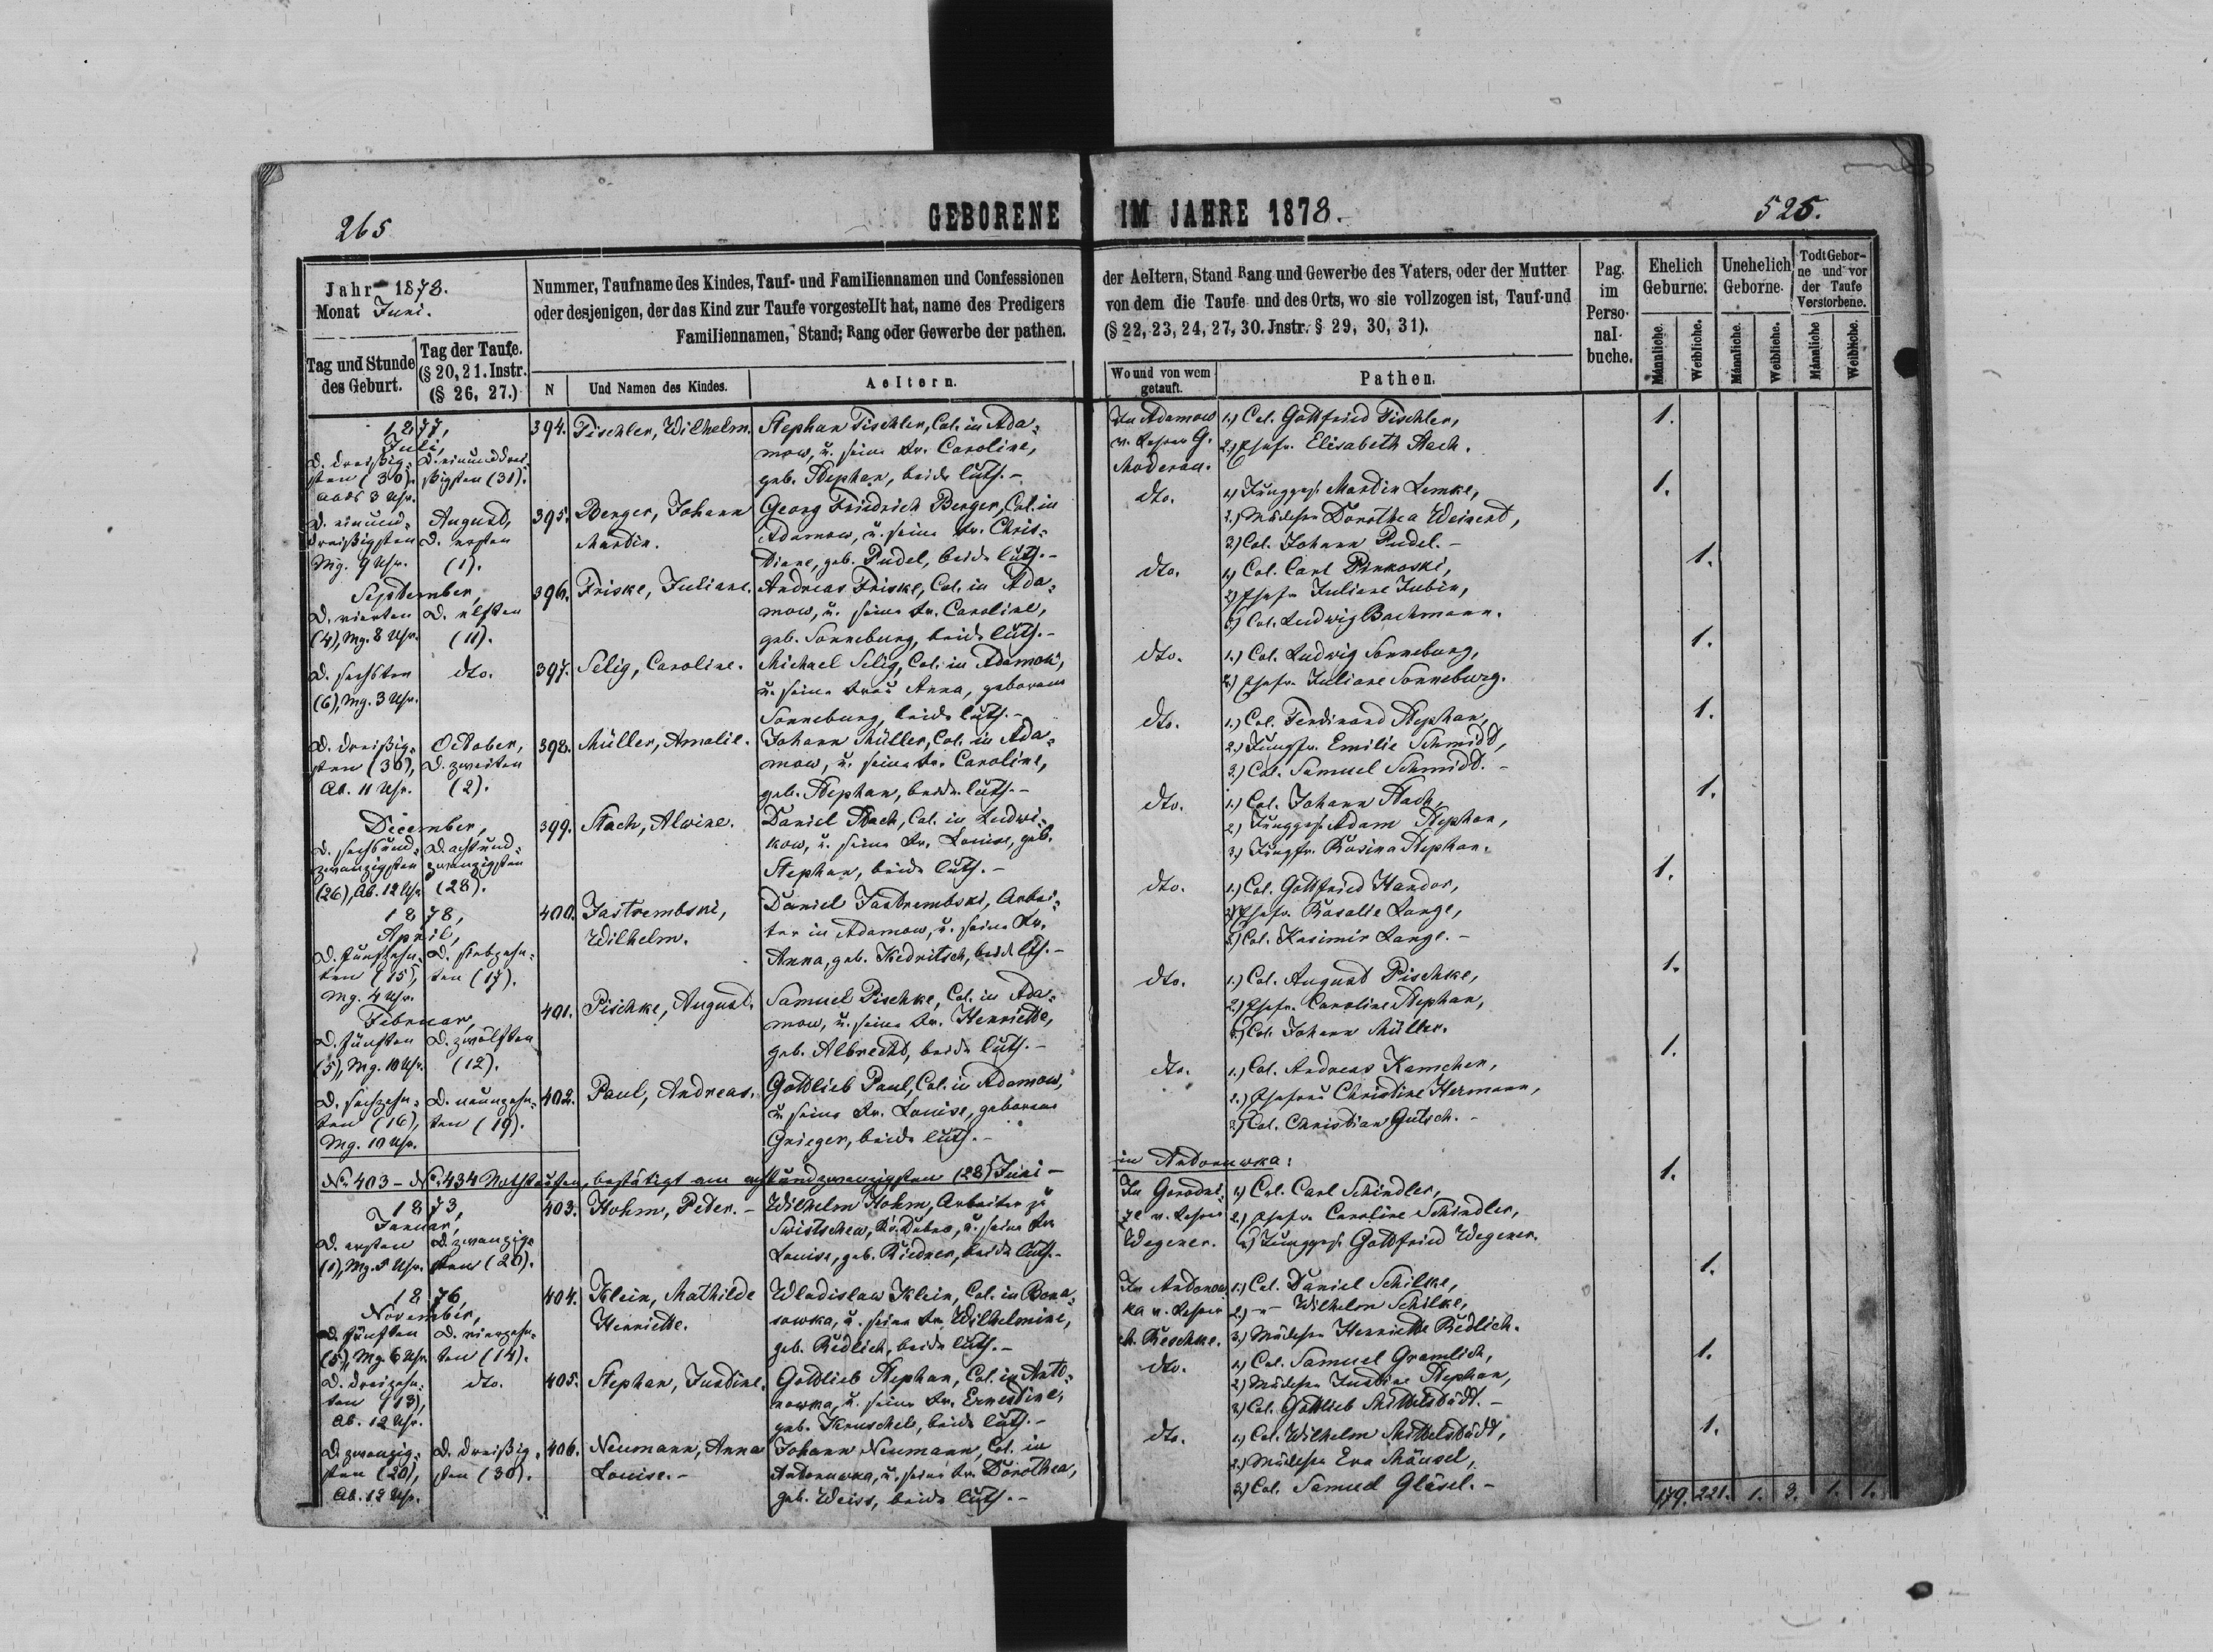 265
GEBORENE IM JAHRE 1878.
525.
Jahr 1878.
Monat Juni.
Tag und Stunde des Geburt.
Tag der Taufe. (§ 20, 21. Instr. (§ 26, 27.)
Nummer, Taufname des Kindes, Tauf- und Familiennamen und Confessionen
oder desjenigen, der das Kind zur Taufe vorgestellt hat, name des Predigers
Familiennamen, Stand; Rang oder Gewerbe der pathen.
N
Und Namen des Kindes.
Aeltern.
der Aeltern, Stand Rang und Gewerbe des Vaters, oder der Mutter
von dem die Taufe und des Orts, wo sie vollzogen ist, Tauf-und
(§ 22, 23, 24, 27, 30. Jnstr. § 29, 30, 31).
Wo und von wem getauft.
Pathen.
Pag. im Perso- nal- buche.
Ehelich Geburne.
Unehelich Geborne.
Todt Gebor- ne und vor der Taufe Verstorbene.
Männliche.
Weibliche.
Männliche.
Weibliche.
Männliche
Weibliche.
1877,
Juli,
D. dreißig-
sten (30).
Abds 3 Uhr.
D. einunddrei-
ßigsten (31).
394. Tischler, Wilhelm.
Stephan Tischler, Col. in Ada-
mow, u. seine Fr. Caroline,
geb. Stephan, beide luth.-
In Adamow
v. Lehrer G.
Moderau.
1.) Col. Gottfried Tischler,
2.) Ehefr. Elisabeth Stach.
1.
D. einund-
dreißigsten
Mg. 9 Uhr.
August,
D. ersten
(1).
395. Berger, Johann
Martin.
Georg Friedrich Berger, Col. in
Adamow, u. seine Fr. Chris-
tiane, geb. Pudel, beide luth.-
dto.
1.) Junggs. Martin Lemke,
2.) Mädchen Dorothea Weinert,
3.) Col. Johann Pudel.-
1.
September,
D. vierten
(4), Mg. 8 Uhr.
D. elften
(11).
396. Friske, Juliane.
Andreas Friske, Col. in Ada-
mow, u. seine Fr. Caroline,
geb. Sonneburg, beide luth.-
dto.
1.) Col. Carl Pinkoski,
2.) Ehefr. Juliane Jubin,
3.) Col. Ludwig Bachmann.
1.
D. sechsten
(6), Mg. 3 Uhr.
dto.
397. Selig, Caroline.
Michael Selig, Col. in Adamow,
u. seine Frau Anna, geborene
Sonneburg, beide luth.-
dto.
1.) Col. Ludwig Sonneburg,
2.) Ehefr. Juliane Sonneburg.
1.
D. dreißig-
sten (30),
Ab. 11 Uhr.
October,
D. zweiten
(2).
398. Müller, Amalie.
Johann Müller, Col. in Ada-
mow, u. seine Fr. Caroline,
geb. Stephan, beide luth.-
dto.
1.) Col. Ferdinand Stephan,
2.) Jungfr. Emilie Schmidt,
3.) Col. Samuel Schmidt.-
1.
December,
D. sechsund-
zwanzigsten
(26), Ab. 12 Uhr
D. achtund-
zwanzigsten
(28).
399. Stach, Alwine.
Daniel Stach, Col. in Ludwi-
kow, u. seine Fr. Louise, geb.
Stephan, beide luth.-
dto.
1.) Col. Johann Stach,
2.) Junggs. Adam Stephan,
3.) Jungfr. Rosina Stephan.
1.
1878,
April,
D. fünfzehn-
ten (15),
Mg. 4 Uhr.
D. siebzehn-
ten (17).
400. Jastrembski,
Wilhelm.
Daniel Jastrembski, Arbei-
ter in Adamow, u. seine Fr.
Anna, geb. Kedritsch, beide luth.-
dto.
1.) Col. Gottfried Handor,
2.) Ehefr. Rosalie Lange,
3.) Col. Kasimir Lange.-
1.
Februar,
D. fünften
(5), Mg. 10 Uhr.
D. zwölften
(12).
401. Pischke, August.
Samuel Pischke, Col. in Ada-
mow, u. seine Fr. Henriette,
geb. Albrecht, beide luth.-
dto.
1.) Col. August Pischke,
2.) Ehefr. Caroline Stephan,
3.) Col. Johann Müller.
1.
D. sechzehn-
ten (16),
Mg. 10 Uhr.
D. neunzehn-
ten (19).
402. Paul, Andreas.
Gottlieb Paul, Col. in Adamow,
u. seine Fr. Louise, geborene
Grieger, beide luth.-
dto.
1.) Col. Andreas Kamchen,
2.) Ehefrau Christine Hermann,
3.) Col. Christian Gutsch.-
1.
No. 403 - No. 434 Nothtaufen, bestätigt am achtundzwanzigsten (28) Juni - in Antonuwka:
1873,
Januar,
D. ersten
(1), Mg. 5 Uhr.
D. zwanzig-
sten (20).
403. Hohm, Peter.-
Wilhelm Hohm, Arbeiter zu
Switschew, Kr. Dubno, u. seine Fr.
Louise, geb. Riedner, beide luth.-
In Gorodni-
ze v. Lehrer
Wegener.
1.) Col. Carl Schindler,
2.) Ehefr. Caroline Schindler,
3.) Junggs. Gottfried Wegener.
1.
1876,
November,
D. fünften
(5), Mg. 6 Uhr
D. vierzehn-
ten (14).
404. Klein, Mathilde
Henriette.
Wladislaw Klein, Col. in Bona-
sowka, u. seine Fr. Wilhelmine,
geb. Redlich, beide luth.-
In Antonow
ka v. Lehrer
A. Reschke.
1.) Col. Daniel Schilke,
2.) -"- Wilhelm Schilke,
3.) Mädchen Henriette Redlich.
1.
D. dreizehn-
ten (13),
Ab. 12 Uhr.
dto.
405. Stephan, Justine.
Gottlieb Stephan, Col. in Anto-
nowka, u. seine Fr. Ernestine,
geb. Kruschel, beide luth.-
dto.
1.) Col. Samuel Gramlich,
2.) Mädchen Justine Stephan,
3.) Col. Gottlieb Mittelstädt.-
1.
D. zwanzig-
sten (20),
Ab. 12 Uhr.
D. dreißig-
sten (30).
406. Neumann, Anna
Louise.-
Johann Neumann, Col. in
Antonuwka, u. seine Fr. Dorothea,
geb. Weiss, beide luth.-
dto.
1.) Col. Wilhelm Mittelstädt,
2.) Mädchen Eva Mäusel,
3.) Col. Samuel Gläsel.-
1.
179. 221. 1. 3. 1. 1.